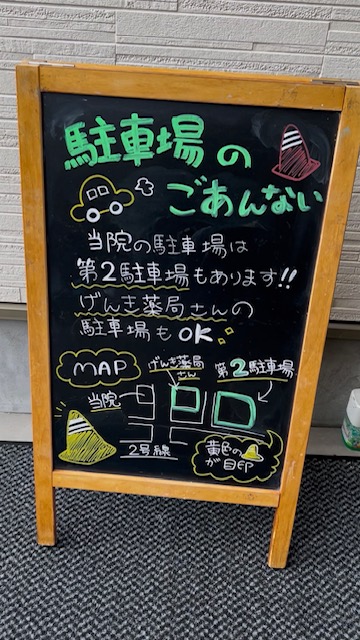 駐車場の
ごあんない
当院の駐車場は
第2駐車場もあります!!
げんき薬局さんの
駐車場もOK
MAP
げんき薬局
さん
第2駐車場
当院
2号線
黄色の
が目印